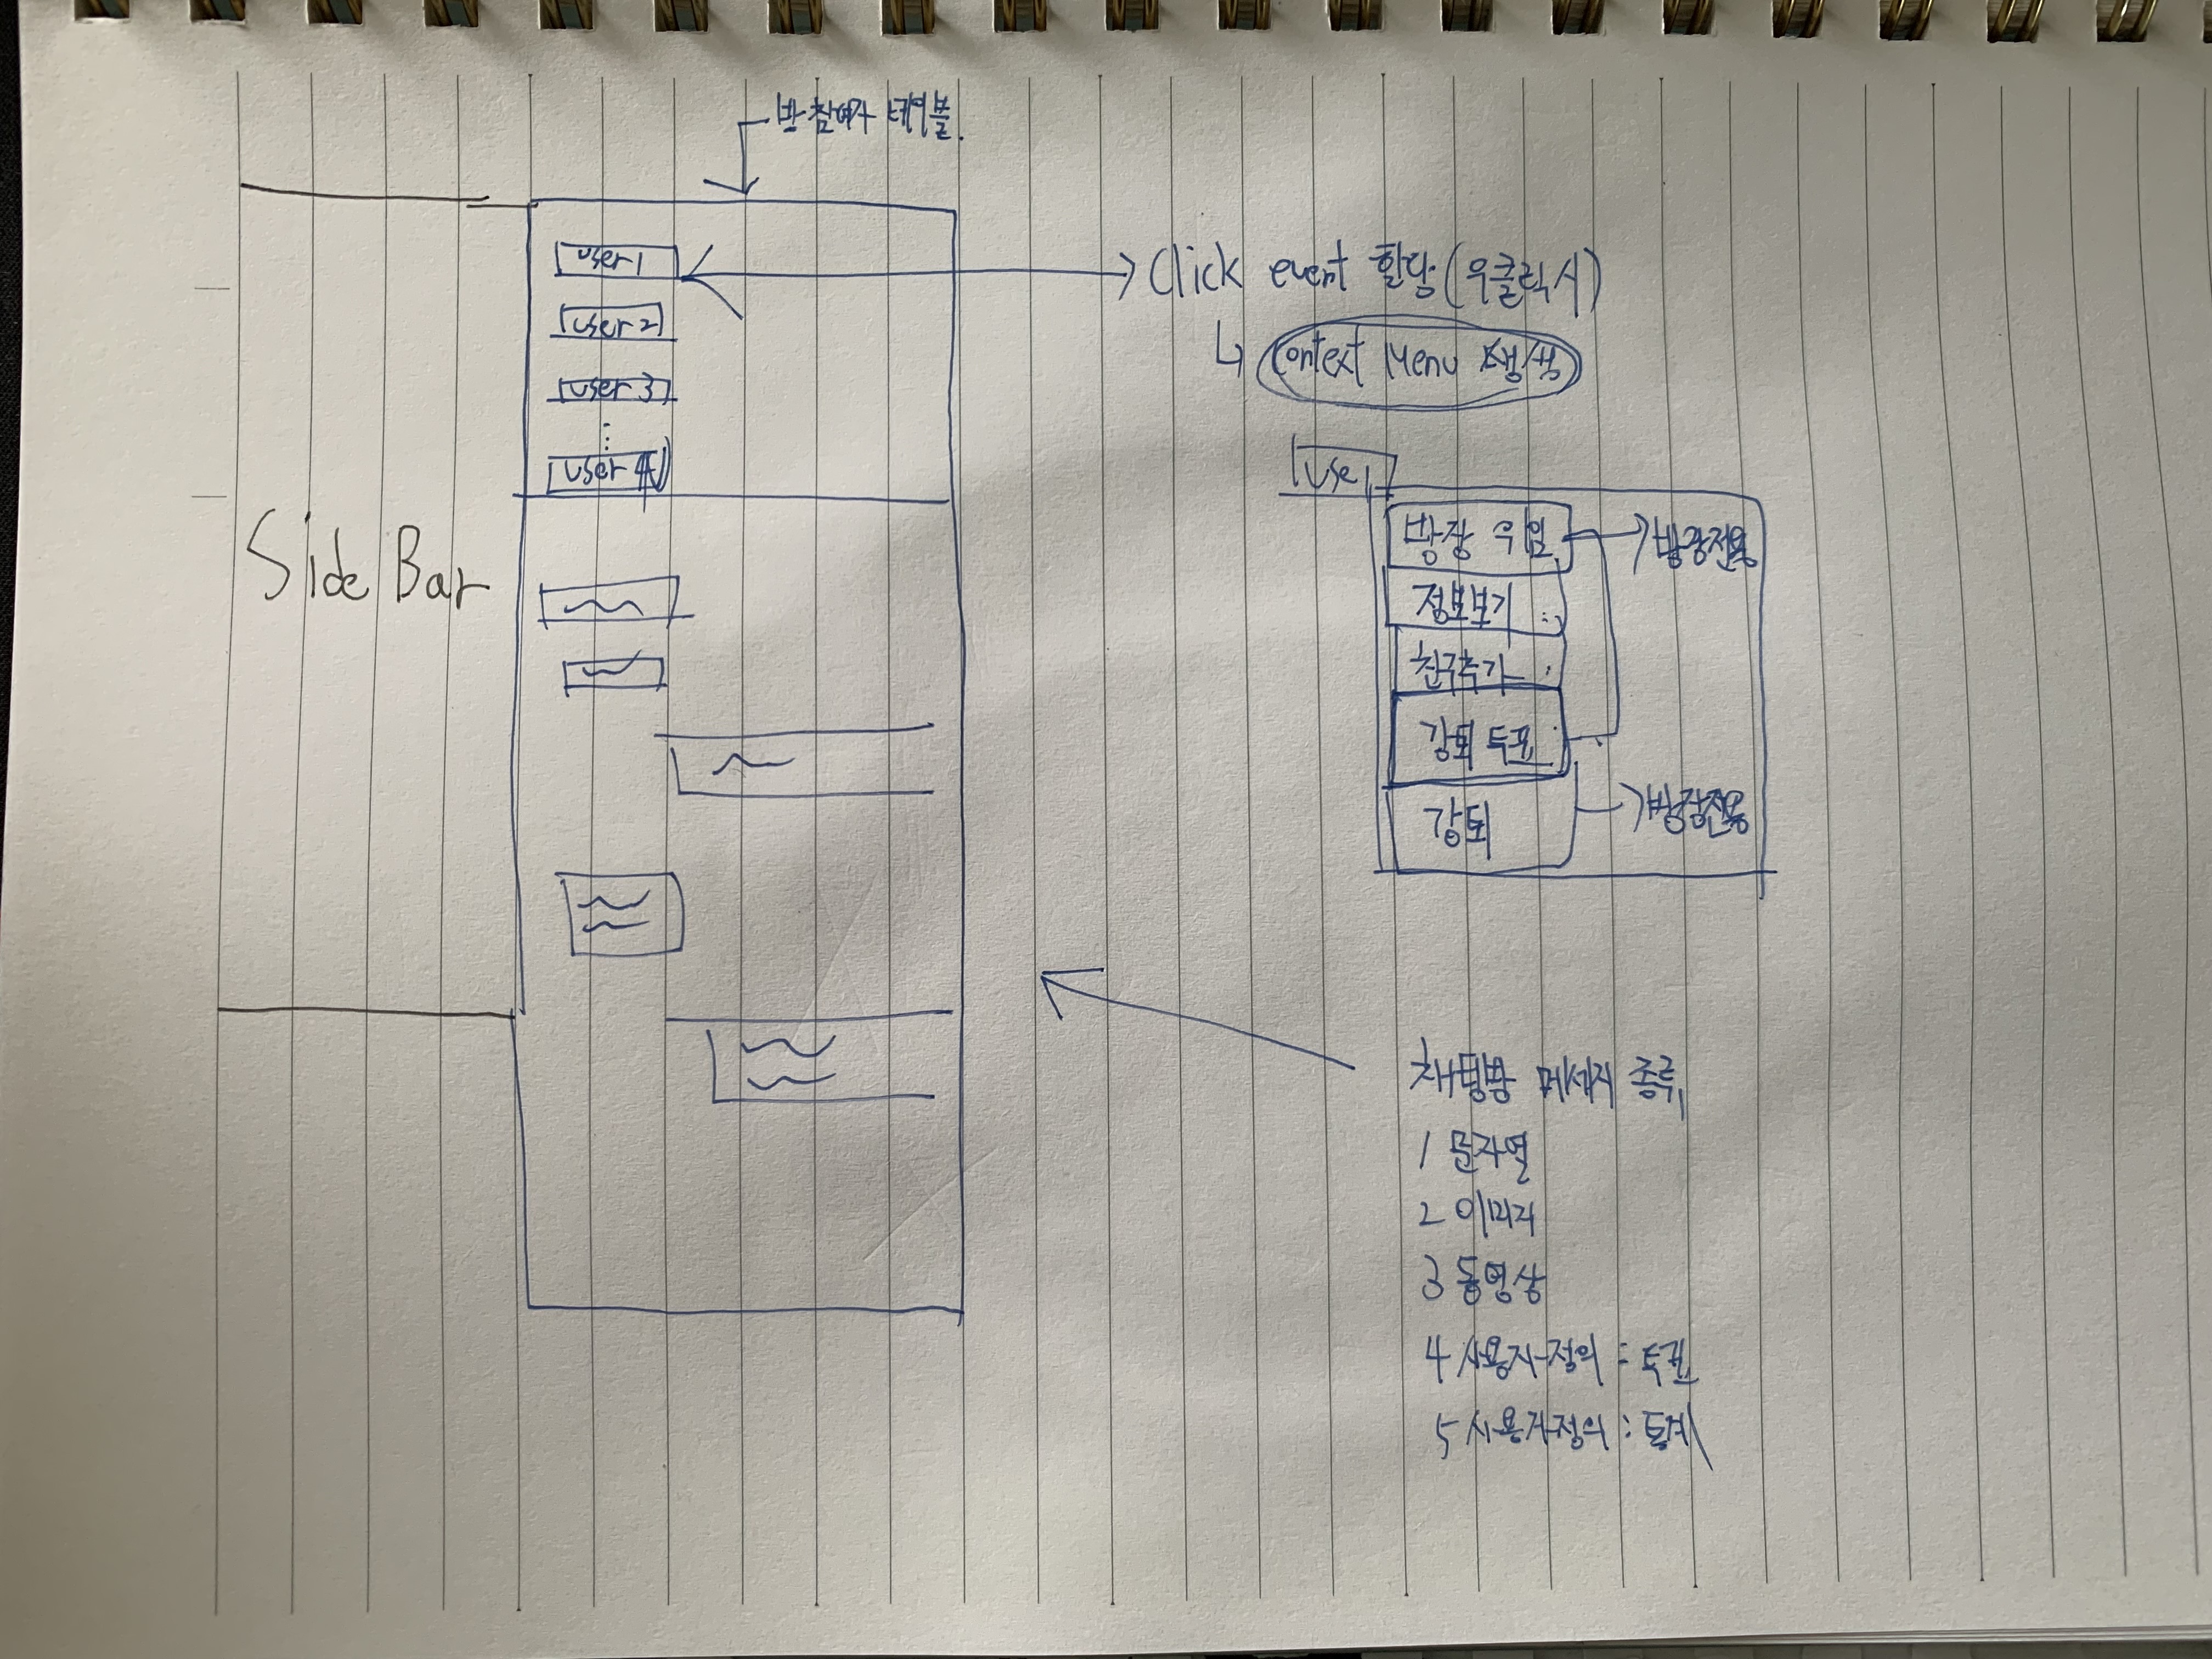 방 참여자 테이블.
user 1
user 2
user 3
user
Side Bar
Click event 할당 (우클릭시)
Context Menu 생성
방장 위임
방장전용
정보보기
친구추가
강퇴 투표
강퇴
방장전용
채팅방 메세지 종류
1 문자열
2 이미지
3 동영상
4 사용자-정의 : 투표
5 사용자-정의 : 통계